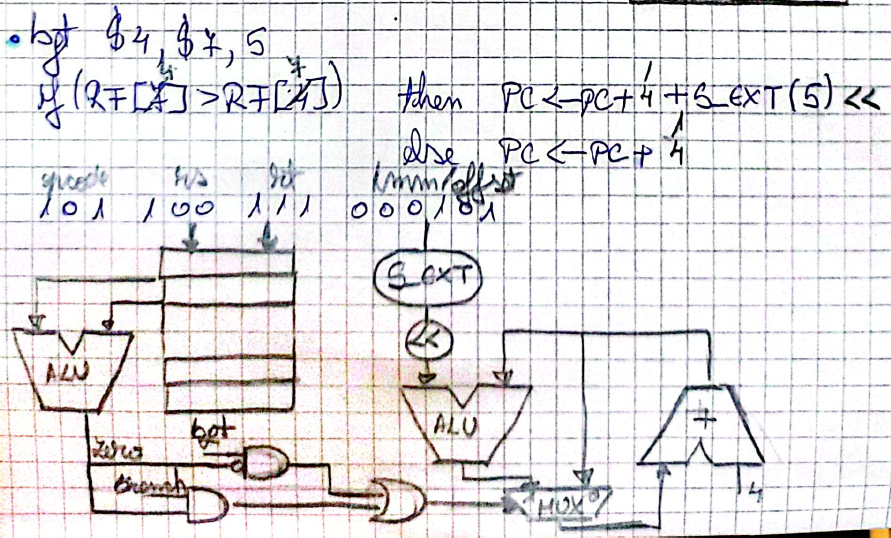 • bgt $4, $7, 5
if (RF[4] > RF[7]) then PC ← PC + 4 + S_EXT(5) <<
else PC ← PC + 4
opcode rs rd imm/offset
101 100 111 000101
S_EXT
<<
ALU
ALU
+
bgt
zero
branch
4
MUX 0